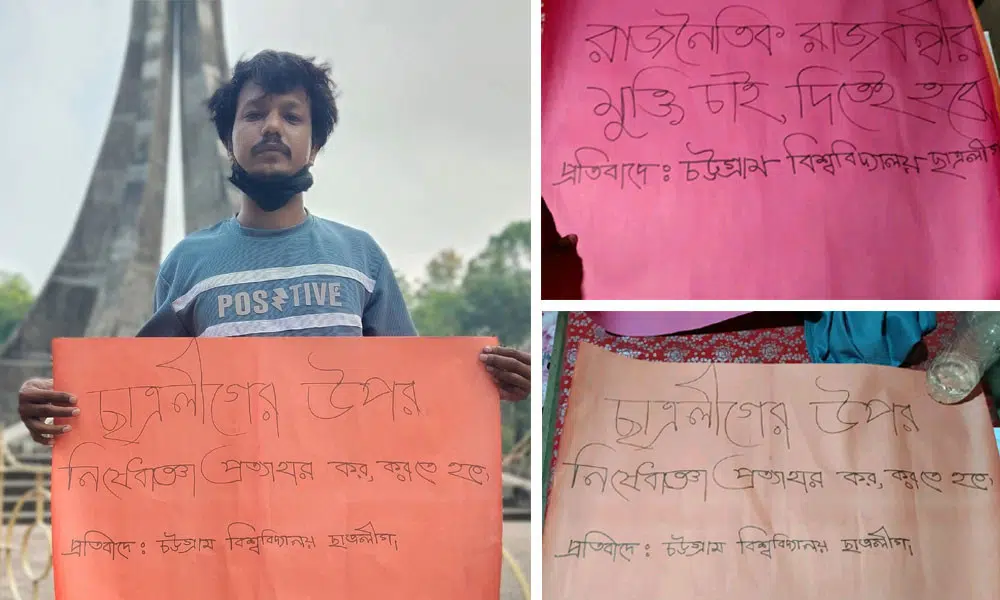 POSITIVE
ছাত্রলীগের উপর
নিষেধাজ্ঞা প্রত্যাহার কর, করতে হবে
প্রতিবাদে : চট্টগ্রাম বিশ্ববিদ্যালয় ছাত্রলীগ।
রাজনৈতিক রাজবন্দীর
মুক্তি চাই, দিতেই হবে
প্রতিবাদে : চট্টগ্রাম বিশ্ববিদ্যালয় ছাত্রলীগ
ছাত্রলীগের উপর
নিষেধাজ্ঞা প্রত্যাহার কর, করতে হবে
প্রতিবাদে : চট্টগ্রাম বিশ্ববিদ্যালয় ছাত্রলীগ।